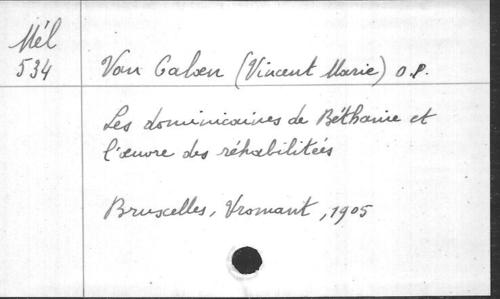 Mél
534
Van Caloen (Vincent Marie) O.P.
Les dominicaines de Béthanie et
l'œuvre des réhabilitées
Bruxelles, Vromant, 1905